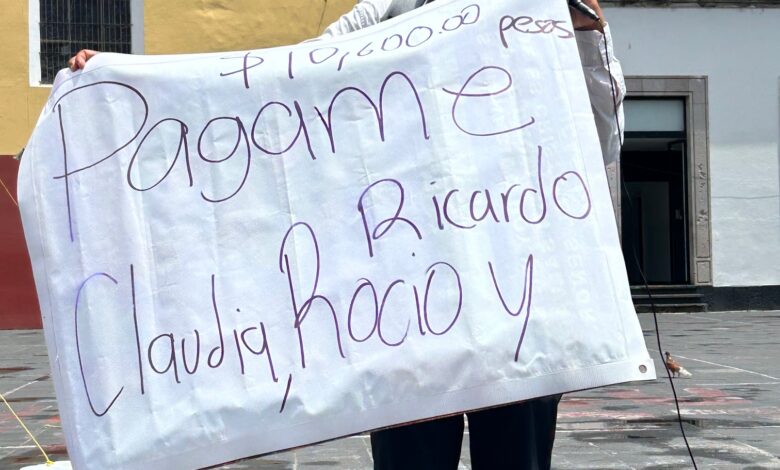 $10,600.00 pesos
Pagame
Ricardo
Claudia, Rocio y